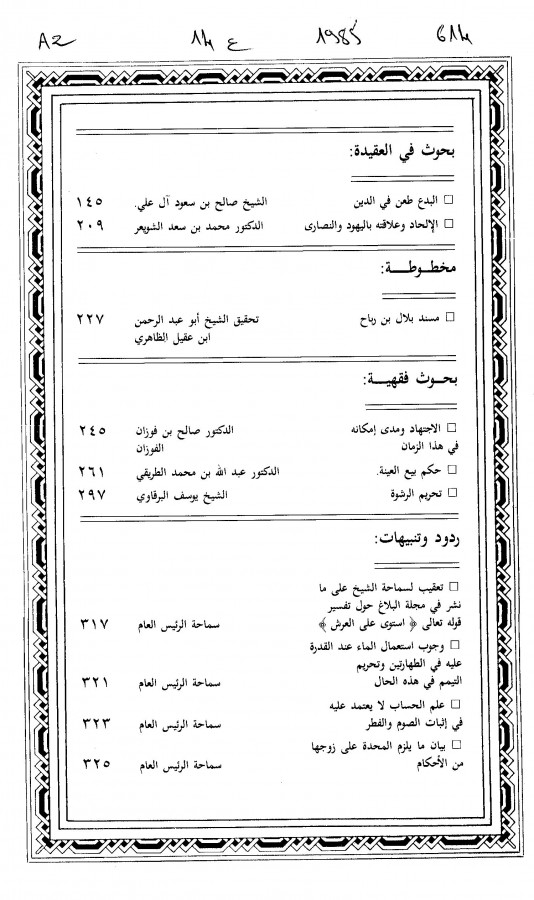 A2 ع 14 1985 614
بحوث في العقيدة:
□ البدع طعن في الدين الشيخ صالح بن سعود آل علي. ١٤٥
□ الإلحاد وعلاقته باليهود والنصارى الدكتور محمد بن سعد الشويعر ٢٠٩
مخطـوطـــة:
□ مسند بلال بن رباح تحقيق الشيخ أبو عبد الرحمن ٢٢٧
ابن عقيل الظاهري
بحــوث فقهيــة:
□ الاجتهاد ومدى إمكانه الدكتور صالح بن فوزان ٢٤٥
في هذا الزمان الفوزان
□ حكم بيع العينة. الدكتور عبد الله بن محمد الطريقي ٢٦١
□ تحريم الرشوة الشيخ يوسف البرقاوي ٢٩٧
ردود وتنبيهات:
□ تعقيب لسماحة الشيخ على ما
نشر في مجلة البلاغ حول تفسير
قوله تعالى ﴿ استوى على العرش ﴾ سماحة الرئيس العام ٣١٧
□ وجوب استعمال الماء عند القدرة
عليه في الطهارتين وتحريم
التيمم في هذه الحال سماحة الرئيس العام ٣٢١
□ علم الحساب لا يعتمد عليه
في إثبات الصوم والفطر سماحة الرئيس العام ٣٢٣
□ بيان ما يلزم المحدة على زوجها
من الأحكام سماحة الرئيس العام ٣٢٥